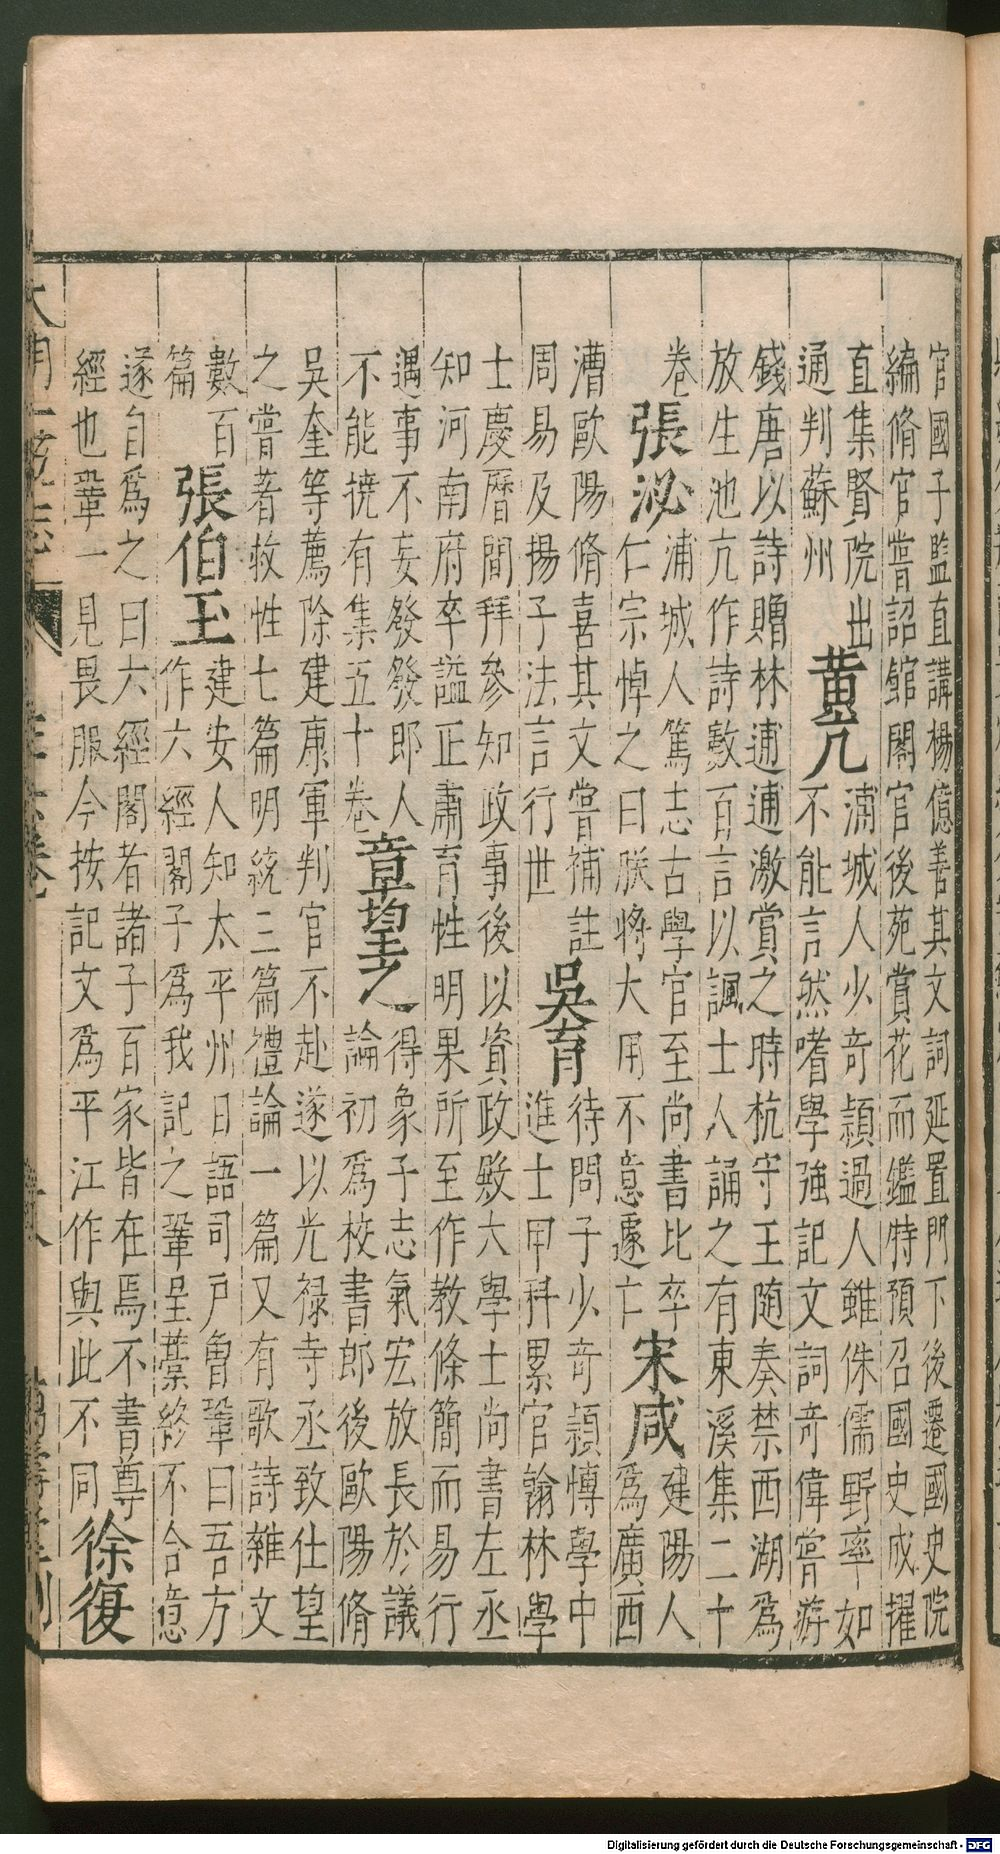 官國子監直講楊億善其文詞延置門下後遷國史院
編脩官嘗詔館閣官後苑賞花而鑑特預召國史成擢
直集賢院出
通判蘇州
黃亢
浦城人少奇穎過人雖侏儒野率如
不能言然嗜學強記文詞奇偉嘗游
錢唐以詩贈林逋逋激賞之時杭守王随奏禁西湖為
放生池亢作詩數百言以諷士人誦之有東溪集二十
卷
張泌
浦城人篤志古學官至尚書比卒
仁宗悼之曰朕將大用不意遽亡
宋咸
建陽人
為廣西
漕歐陽脩喜其文嘗補註
周易及揚子法言行世
吳育
待問子少奇穎愽學中
進士甲科累官翰林學
士慶曆間拜參知政事後以資政殿大學士尚書左丞
知河南府卒謚正肅育性明果所至作教條簡而易行
遇事不妄發發即人
不能撓有集五十卷
章望之
得象子志氣宏放長於議
論初為校書郎後歐陽脩
吳奎等薦除建康軍判官不赴遂以光禄寺丞致仕望
之嘗著救性七篇明統三篇禮論一篇又有歌詩雜文
數百
篇
張伯玉
建安人知太平州日語司户曾鞏曰吾方
作六經閣子為我記之鞏呈藁終不合意
遂自為之曰六經閣者諸子百家皆在焉不書尊
經也鞏一見畏服今按記文為平江作與此不同
徐復
大明一統志
萬壽堂刊
Digitalisierung gefördert durch die Deutsche Forschungsgemeinschaft - DFG